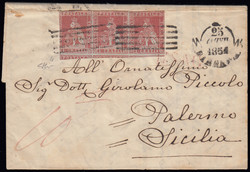 23
1854
All' Ornatissimo
Sig.r Dott. Girolamo Piccolo
Palermo
Sicilia